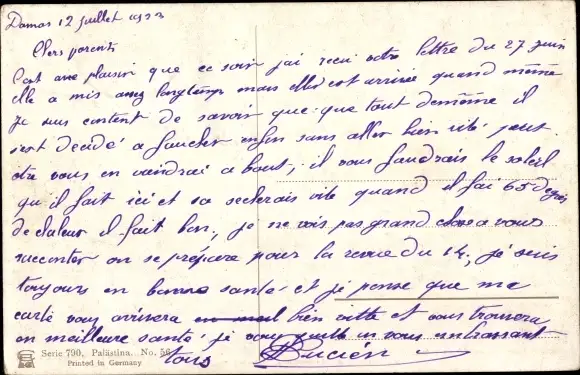 Damas 12 juillet 1923
Chers parents
C'est avec plaisir que ce soir j'ai recu votre lettre du 27 juin
elle a mis assez longtemp mais elle est arrivée quand même
Je suis content de savoir que que tout demême il
s'est decidé a faucher enfin sans aller bien vite peut
être vous en viendrai a bout, il vous faudrais le soleil
qu'il fait ici et sa secherais vite quand il fai 65 degrés
de chaleur il fait bon, je ne vois pas grand chose a vous
raconter on se prépare pour la revue du 14, je suis
toujours en bonne santé et je pense que ma
carte vous arrivera bien vitte et vous trouvera
en meilleure santé je vous quitte en vous embrassant
tous Lucien
Serie 790, Palästina. No. 56
Printed in Germany